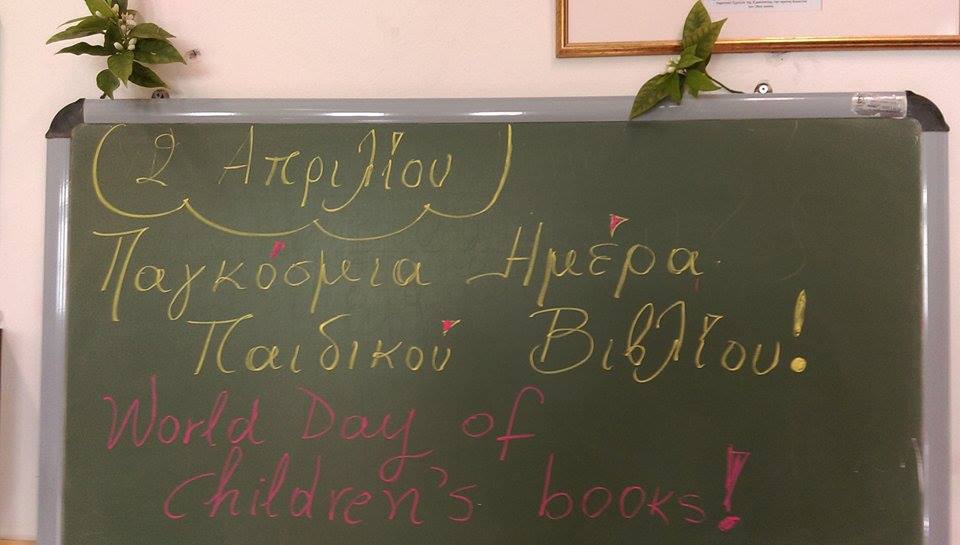 (2 Απριλίου)
Παγκόσμια Ημέρα
Παιδικού Βιβλίου!
World Day of
children's books!